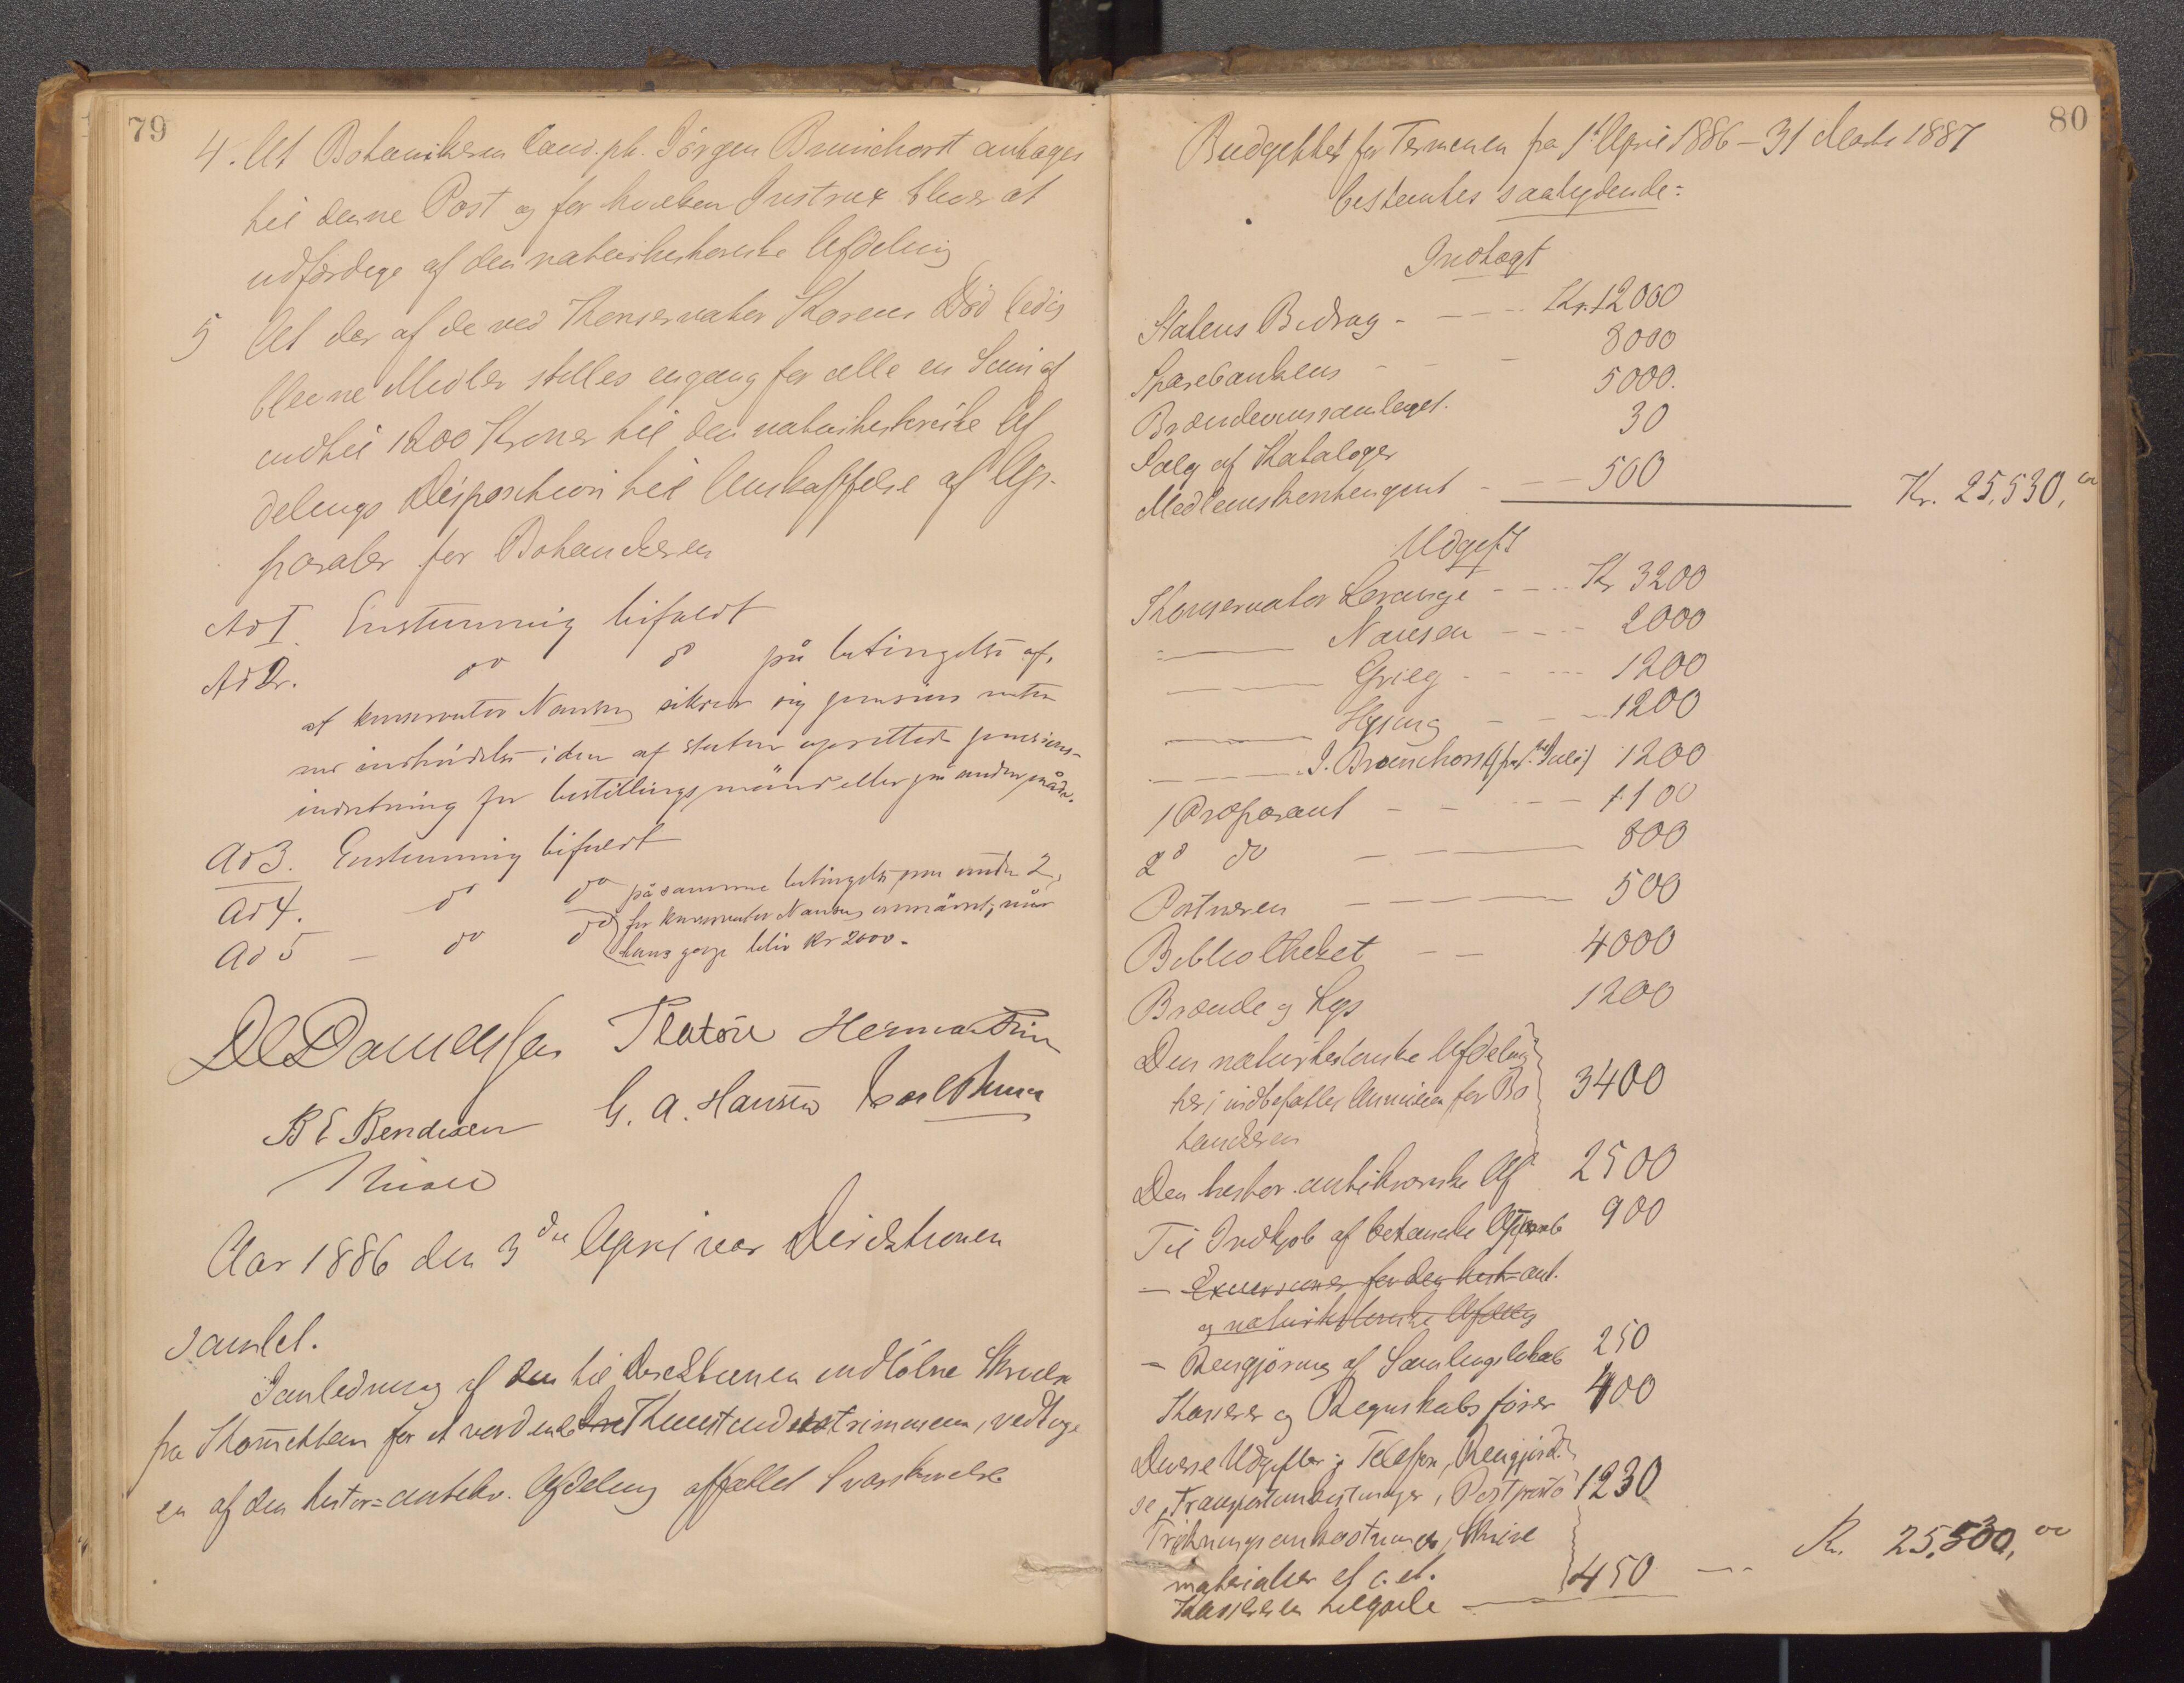 79
4. At Botanikeren Cand. ph. Jörgen Brunchorst antages
til denne Post og for hvilken Instrux bliver at
udfærdige af den naturhistoriske Afdeling
5 At der af de ved Konservator Korens Död ledig
blevne Midler stilles engang for alle en Sum af
indtil 1200 Kroner til den naturhistoriske Af
delings Disposition til Anskaffelse af Ap-
parater for Botanikeren
Ad I. Enstemmig bifaldt
Ad 2. do do på betingelse af,
at konservator Nansen sikrer sig pension enten
ved indtrædelse i den af staten oprettede pensions-
indretning for bestillingsmænd eller på anden måde.
Ad 3. Enstemmig bifaldt
Ad 4. do do på samme betingelse som under 2,
for konservator Nansens nævnt, når
Ad 5 – do do hans gage bliv Kr 2000.
D C Danielssen Platou Herman Friis
B E Bendixen G. A. Hansen
Aar 1886 den 3die April var Direktionen
samlet.
I anledning af den til Direktionen indlöbne Skrivelse
fra Komiteen for et vordende Kunstindustrimuseum, vedtoges
en af den histor=antikv. Afdeling affattet Svarskrivelse
80
Budgettet for Terminen fra 1st April 1886 – 31 Marts 1887
bestemtes saalydende:
Indtægt
Statens Bidrag - Kr. 12000
Sparebankens - 8000
Brændevinssamlaget. 5000.
Salg af Kataloger 30
Medlemskontingent - 500 Kr. 25,530,00
Udgift
Konservator Lorange - Kr 3200
Nansen - 2000
Grieg - 1200
- 1200
J. Brunchorst (fra 1. Juli) 1200
1 Præparant - 1100
2d do 800
Portneren 500
Bibliotheket 4000
Brænde og Lys 1200
Den naturhistoriske Afdeling
heri indbefattet Annuiteten for Bo 3400
tanikeren
Den histor. antikvariske Af 2500
Til Indkjöb af botaniske Apparate 900
– Excursioner for den hist-ant.
og naturhistoriske Afdeling
– Rengjöring af Samlingslokale 250
Kasserer og Regnskabsförer 400
Diverse Udgifter: Telefon, Rengjörel
se, Transportomkostninger, Postporto 1230
Trykningsomkostninger, Skrive
materialier et c. et.
Kassereren tilgode 450 Kr. 25,530,00